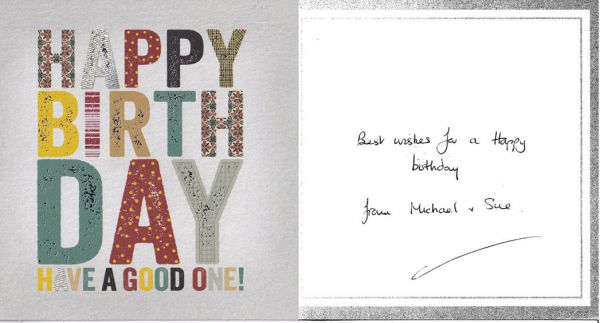 HAPPY
BIRTH
DAY
HAVE A GOOD ONE!
Best wishes for a Happy
birthday
from Michael + Sue.